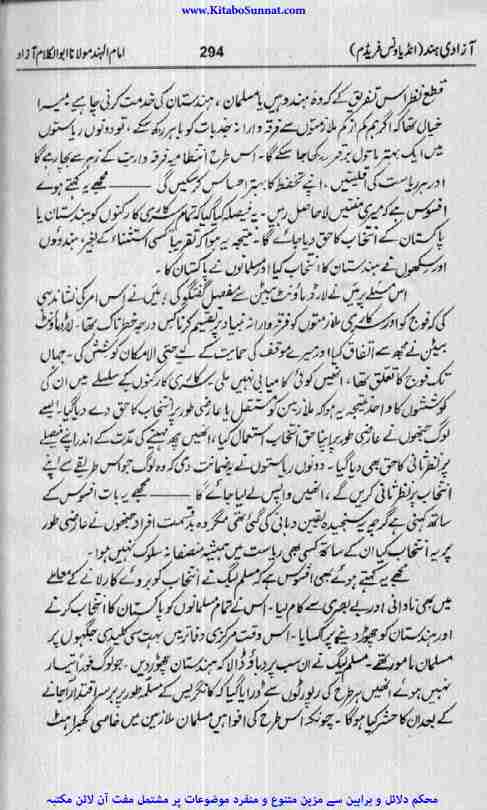 www.KitaboSunnat.com
آزادی ہند (انڈیا ونس فریڈم) 294 امام الہند مولانا ابوالکلام آزاد
قطع نظر اس تفریق کے کہ وہ ہندو ہیں یا مسلمان، ہندستان کی خدمت کرنی چاہیے۔ میرا
خیال تھا کہ اگر ہم کم از کم ملازمتوں سے فرقہ وارانہ جذبات کو باہر رکھ سکے، تو دونوں ریاستوں
میں ایک بہتر ماحول برقرار رکھا جا سکے گا۔ اس طرح انتظامیہ فرقہ واریت کے زہر سے بچا رہے گا
اور ہر ریاست کی اقلیتیں، اپنے تحفظ کا بہتر احساس کر سکیں گی ——— مجھے یہ کہتے ہوئے
افسوس ہے کہ میری منتیں لاحاصل رہیں۔ یہ فیصلہ کیا گیا کہ تمام سرکاری کارکنوں کو ہندستان یا
پاکستان کے انتخاب کا حق دیا جائے گا۔ نتیجہ یہ ہوا کہ تقریباً کسی استثناء کے بغیر، ہندوؤں
اور سکھوں نے ہندستان کا انتخاب کیا اور مسلمانوں نے پاکستان کا۔
اس مسئلے پر میں نے لارڈ ماؤنٹ بیٹن سے مفصل گفتگو کی، میں نے اس امر کی نشاندہی
کی کہ فوج کو اور سرکاری ملازمتوں کو فرقہ وارانہ بنیاد پر تقسیم کرنا کس درجہ خطرناک تھا۔ لارڈ ماؤنٹ
بیٹن نے مجھ سے اتفاق کیا اور میرے موقف کی حمایت کے لیے حتی الامکان کوشش کی۔ جہاں
تک فوج کا تعلق تھا، انھیں کوئی کامیابی نہیں ملی۔ سرکاری کارکنوں کے سلسلے میں ان کی
کوششوں کا واحد نتیجہ یہ ہوا کہ ملازمین کو مستقل یا عارضی طور پر انتخاب کا حق دے دیا گیا۔ ایسے
لوگ جنھوں نے عارضی طور پر اپنا حق انتخاب استعمال کیا، انھیں چھ مہینے کی مدت کے اندر اپنے فیصلے
پر نظرثانی کا حق بھی دیا گیا۔ دونوں ریاستوں نے یہ ضمانت دی کہ وہ لوگ جو اس طریقے سے اپنے
انتخاب پر نظرثانی کریں گے، انھیں واپس لے لیا جائے گا ——— مجھے یہ بات افسوس کے
ساتھ کہنی ہے کہ گرچہ یہ سنجیدہ یقین دہانی کی گئی تھی مگر وہ بدقسمت افراد جنھوں نے عارضی طور
پر یہ انتخاب کیا ان کے ساتھ کسی بھی ریاست میں ہمیشہ منصفانہ سلوک نہیں ہوا۔
مجھے یہ کہتے ہوئے بھی افسوس ہے کہ مسلم لیگ نے انتخاب کو بروئے کار لانے کے معاملے
میں بھی نادانی اور بے بصری سے کام لیا۔ اس نے تمام مسلمانوں کو پاکستان کا انتخاب کرنے
اور ہندستان کو چھوڑ دینے پر اکسایا۔ اس وقت مرکزی دفاتر میں بہت سی کلیدی جگہوں پر
مسلمان مامور تھے۔ مسلم لیگ نے ان سب پر دباؤ ڈالا کہ ہندستان چھوڑ دیں، جو لوگ فوراً تیار
نہیں ہوئے انھیں ہر طرح کی رپورٹوں سے ڈرایا گیا کہ کانگریس کے مسلّمہ طور پر برسر اقتدار آجانے
کے بعد ان کا حشر کیا ہوگا۔ چونکہ اس طرح کی افواہیں مسلمان ملازمین میں خاصی گھبراہٹ
محکم دلائل و براہین سے مزین متنوع و منفرد موضوعات پر مشتمل مفت آن لائن مکتبہ